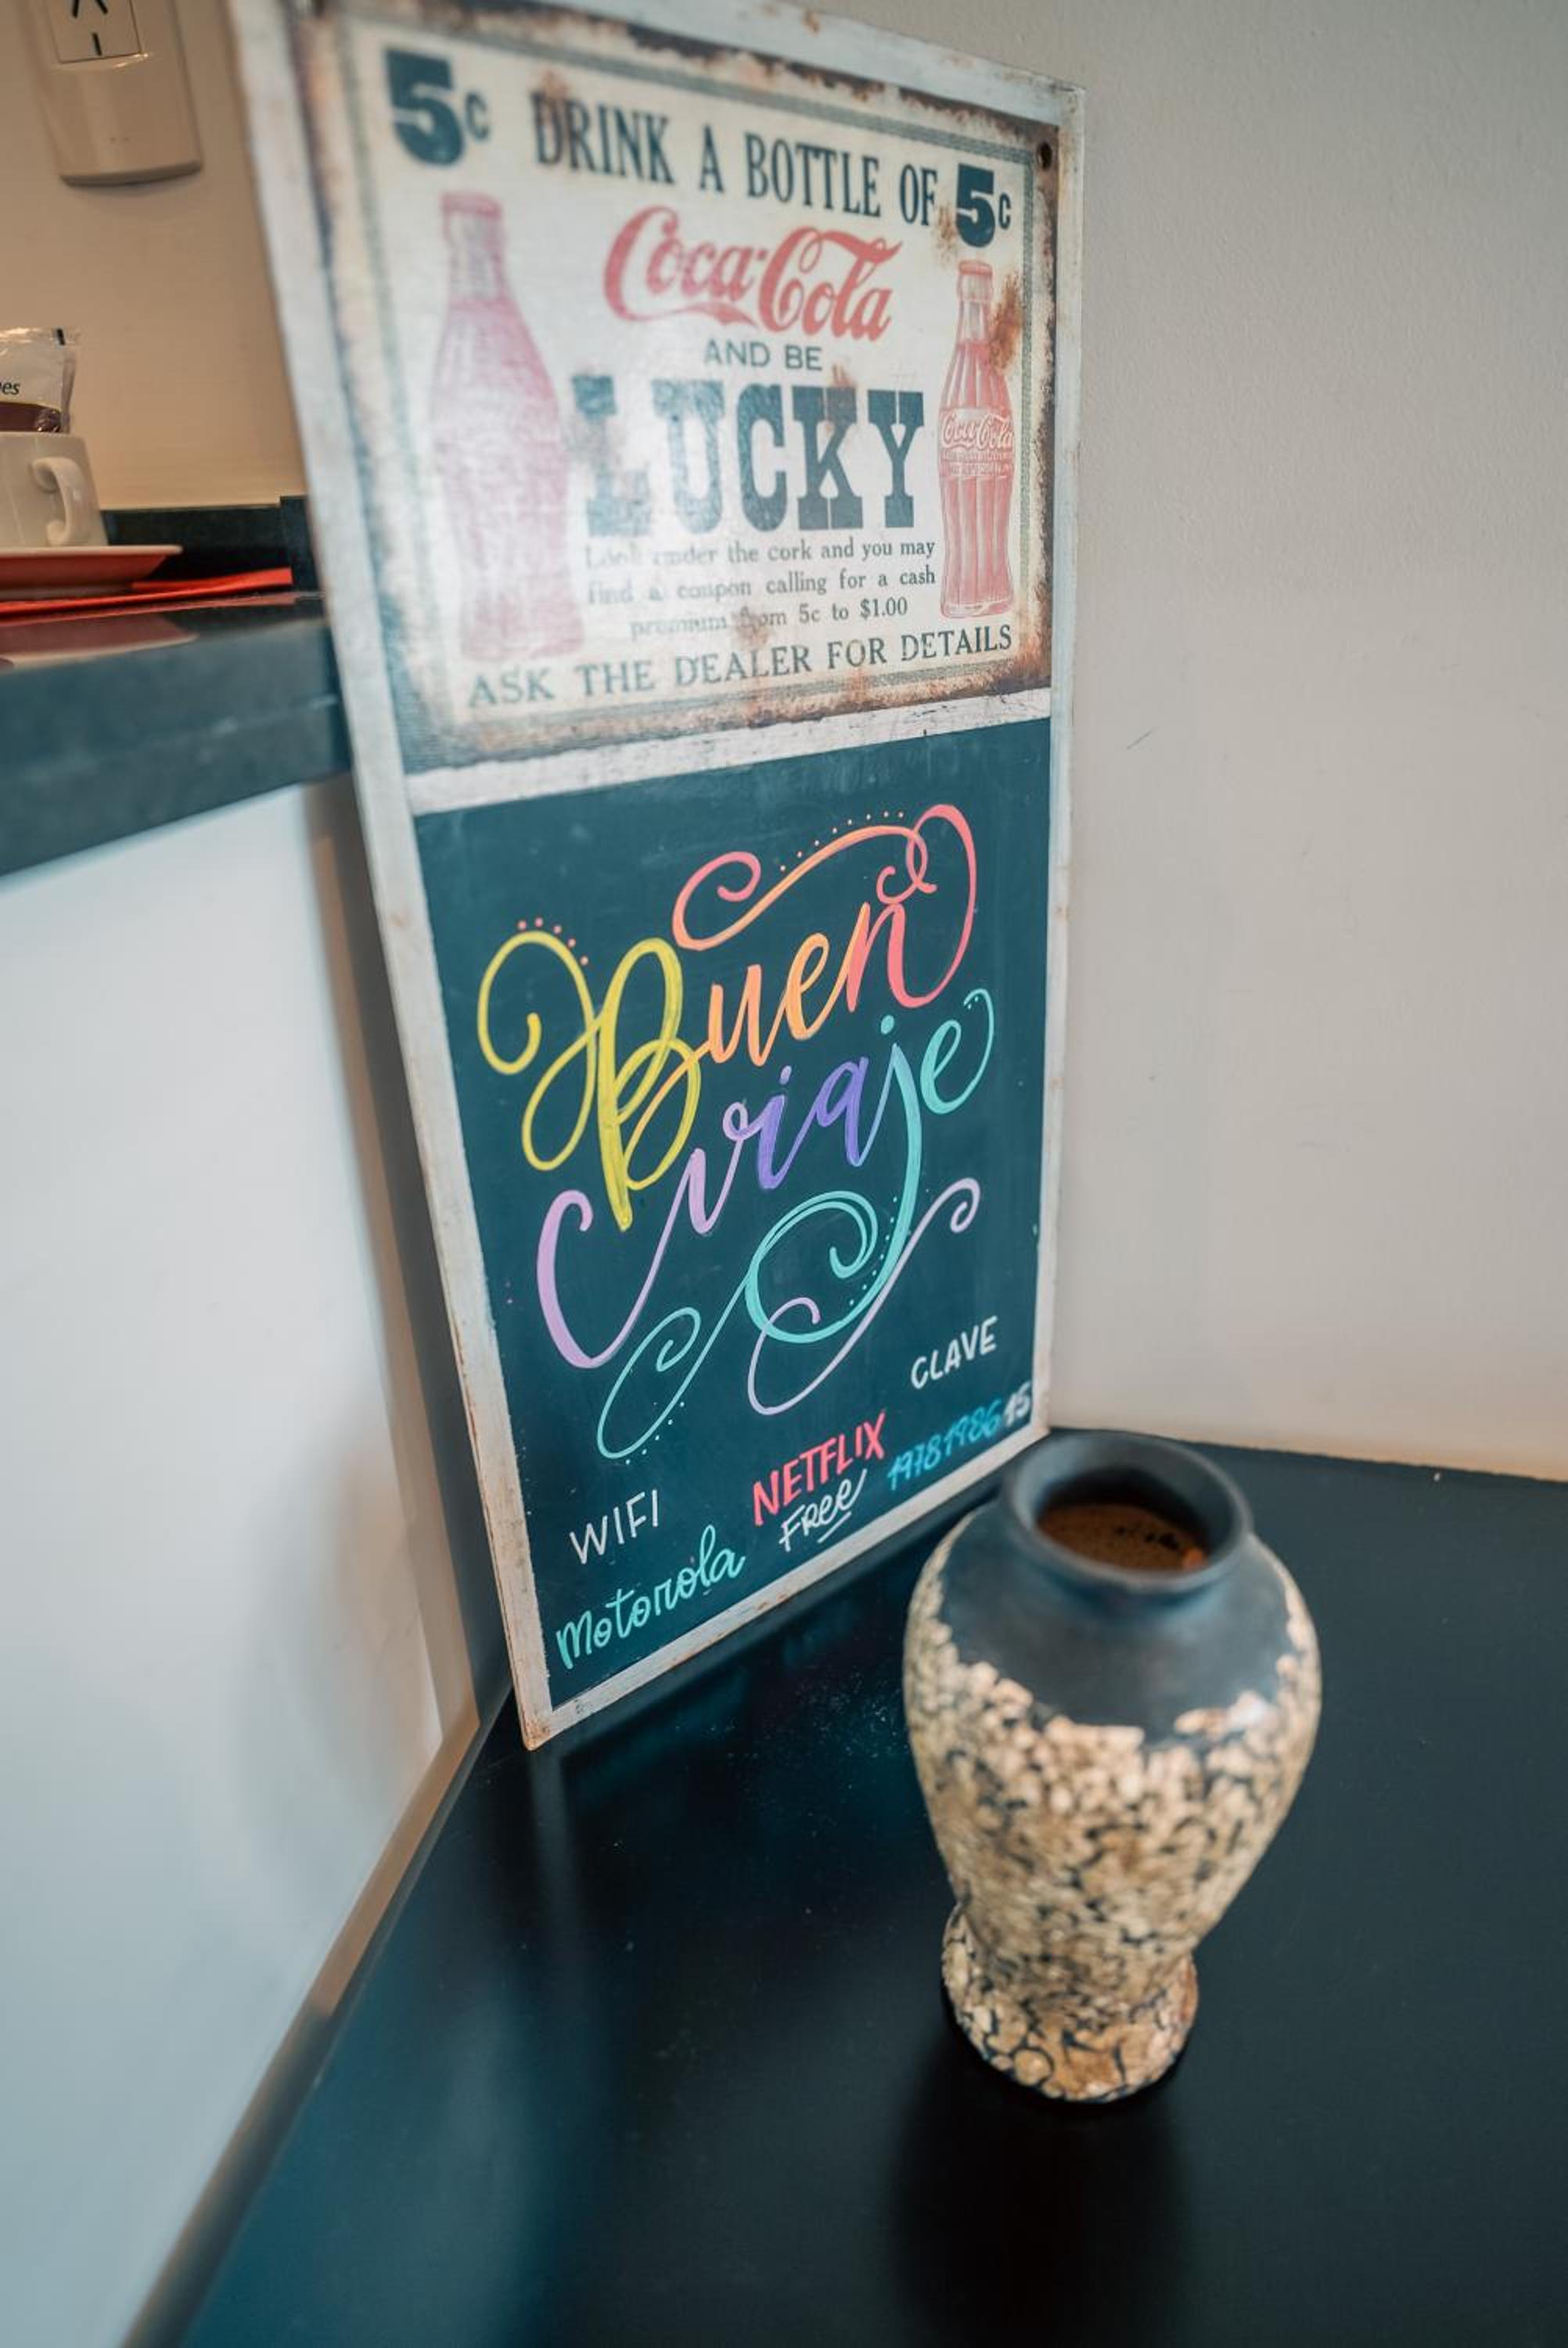 5c DRINK A BOTTLE OF 5c
Coca-Cola
AND BE
LUCKY
Coca-Cola
Look under the cork and you may
find a coupon calling for a cash
premium from 5c to $1.00
ASK THE DEALER FOR DETAILS
Buen
viaje
WIFI
Motorola
NETFLIX
FREE
CLAVE
1978198615
es